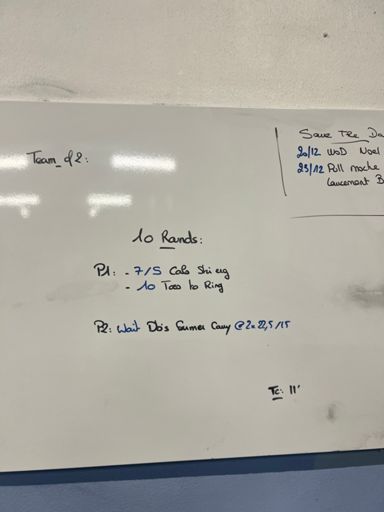 Team of 2:
Save The Da
20/12 WOD Noel
23/12 Pull moche
Lancement B
10 Rounds:
P1: - 7/5 Cals Ski erg
- 10 Toes to Ring
P2: Wait Db's Farmer Carry @ 2x 22,5 /15
Tc: 11'